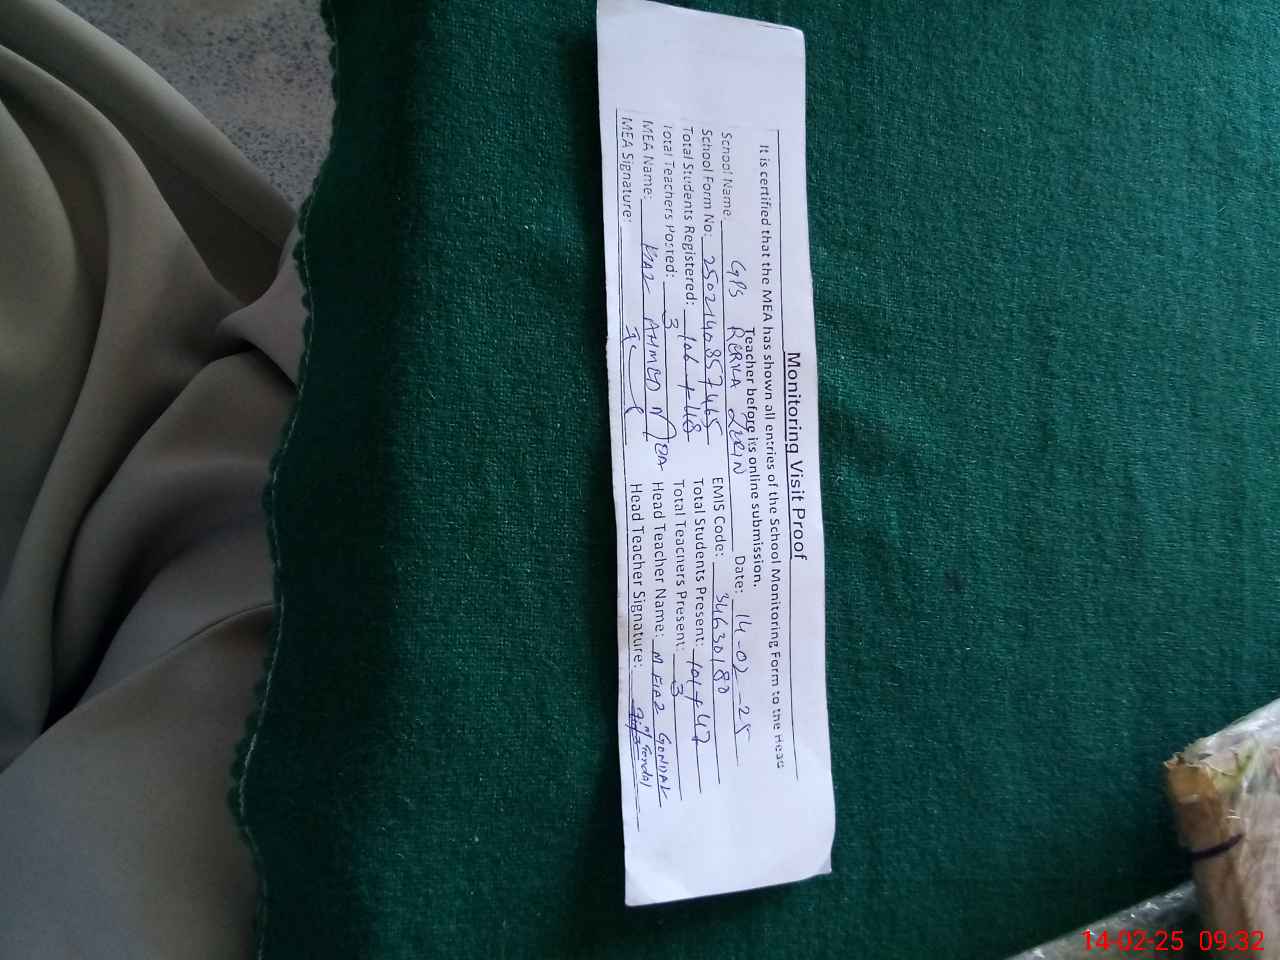 Monitoring Visit Proof
It is certified that the MEA has shown all entries of the School Monitoring Form to the Head
Teacher before its online submission.
School Name: GPS RERKA ZERIN Date: 14-02-25
School Form No: 2502140857465 EMIS Code: 34630180
Total Students Registered: 106+48 Total Students Present: 101+47
Total Teachers Posted: 3 Total Teachers Present: 3
MEA Name: AHMED Head Teacher Name: M FIAZ GONDAL
MEA Signature: Head Teacher Signature: Gondal
14-02-25 09:32